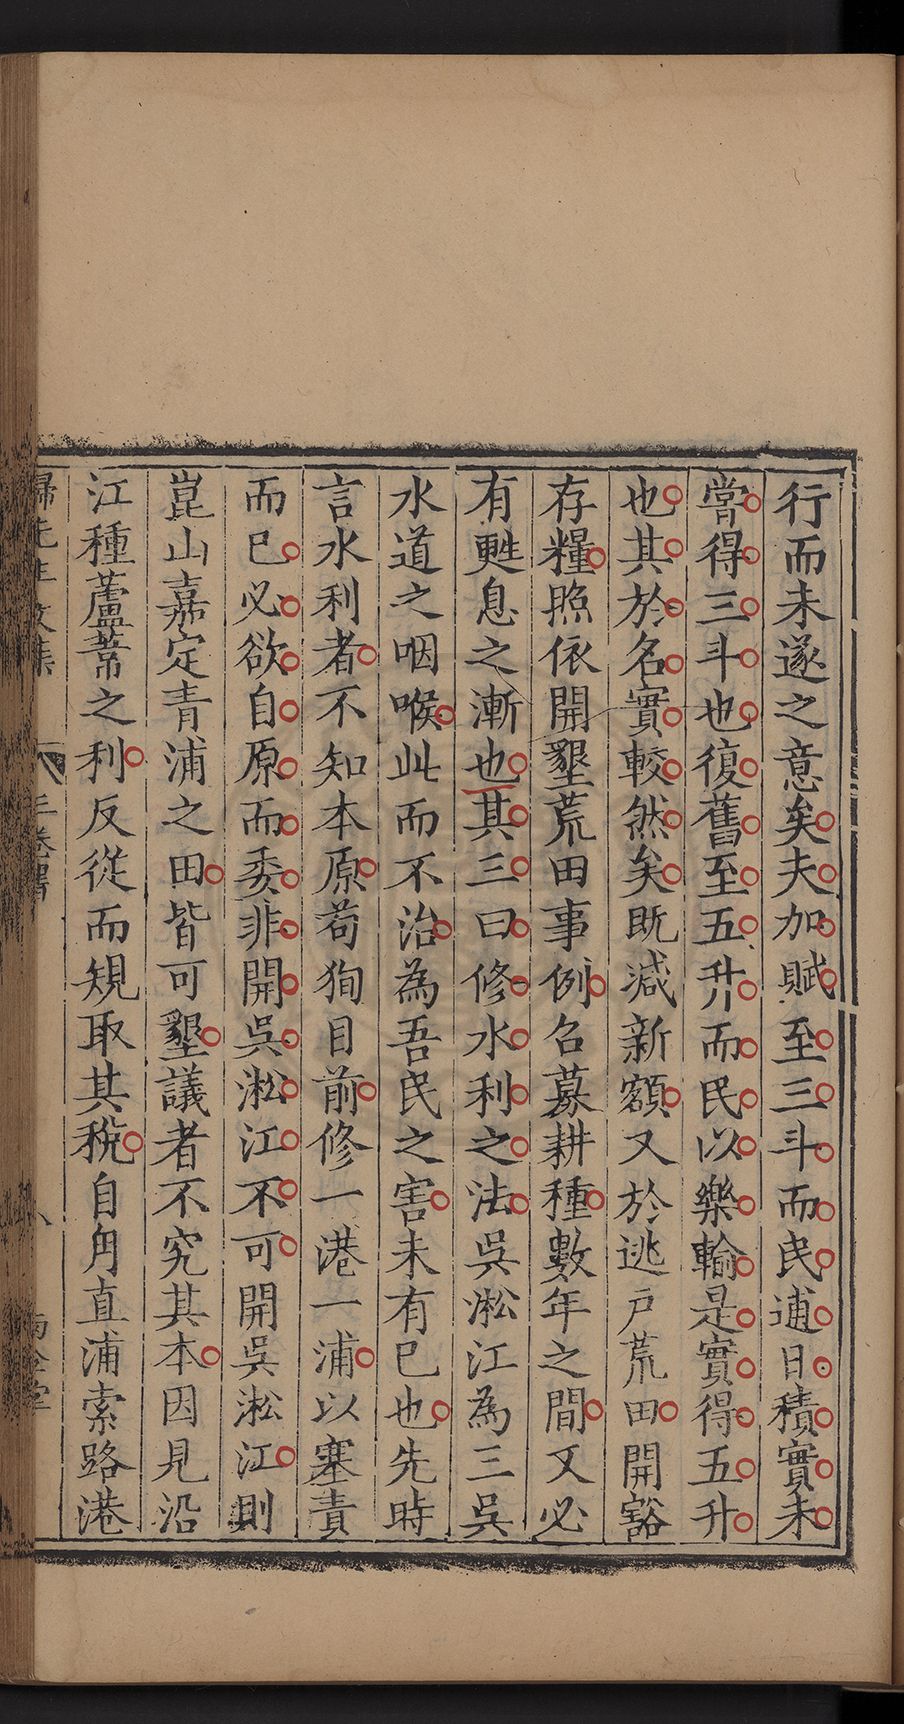 行而未遂之意矣夫加賦至三斗而民逋日積實未
嘗得三斗也復舊至五升而民以樂輸是實得五升
也其於名實較然矣既減新額又於逃戶荒田開豁
存糧照依開墾荒田事例召募耕種數年之間又必
有甦息之漸也其三曰修水利之法吳淞江為三吳
水道之咽喉此而不治為吾民之害未有已也先時
言水利者不知本原苟狥目前修一港一浦以塞責
而已必欲自原而委非開吳淞江不可開吳淞江則
崑山嘉定青浦之田皆可墾議者不究其本因見沿
江種蘆葦之利反從而規取其稅自甪直浦索路港